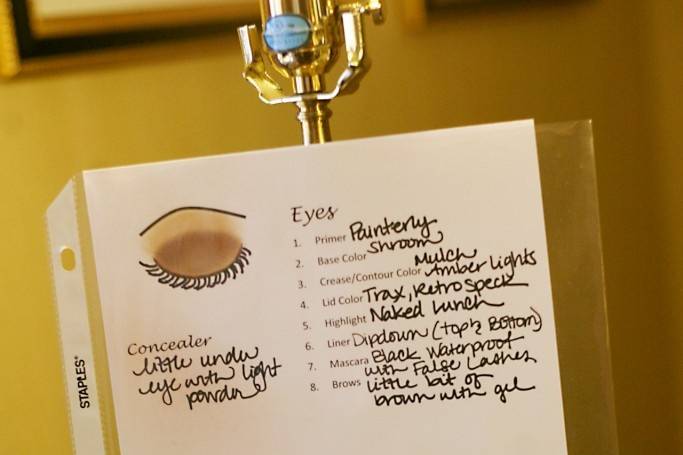 Eyes
1. Primer Painterly
2. Base Color Shroom
3. Crease/Contour Color Mulch
Amber Lights
4. Lid Color Trax, Retrospeck
5. Highlight Naked Lunch
6. Liner Dipdown (top & Bottom)
7. Mascara Black Waterproof
with False Lashes
8. Brows little bit of
brown with gel
Concealer
little under
eye with light
powder
STAPLES